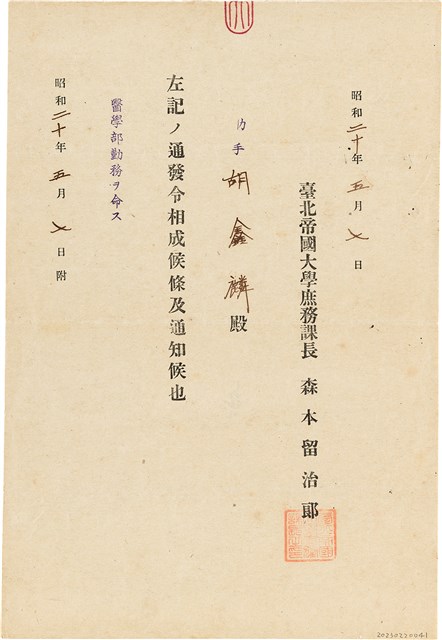 昭和二十年五月七日
臺北帝國大學庶務課長 森本留治郞
助手 胡鑫麟殿
左記ノ通發令相成候條及通知候也
醫學部勤務ヲ命ス
昭和二十年五月七日附
20250220041